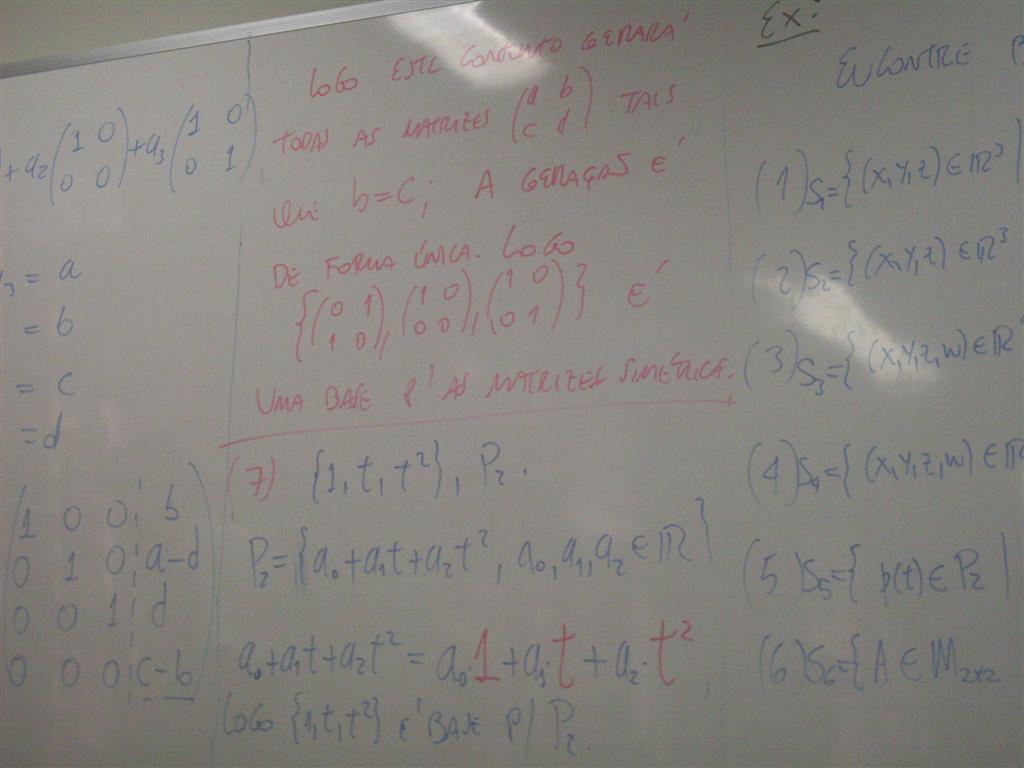 +a₂(1 0 / 0 0)+a₃(1 0 / 0 1)
= a
= b
= c
= d
1 0 0 ¦ b
0 1 0 ¦ a-d
0 0 1 ¦ d
0 0 0 ¦ c-b
LOGO ESTE CONJUNTO GERARÁ
TODAS AS MATRIZES (a b / c d) TAIS
QUE b=c; A GERAÇÃO É
DE FORMA ÚNICA. LOGO
{(0 1 / 1 0), (1 0 / 0 0), (1 0 / 0 1)} É
UMA BASE P/ AS MATRIZES SIMÉTRICA.
(7) {1, t, t²}, P₂.
P₂={a₀+a₁t+a₂t², a₀,a₁,a₂ ∈ ℝ}
a₀+a₁t+a₂t² = a₀·1+a₁·t+a₂·t²,
LOGO {1,t,t²} É BASE P/ P₂.
Ex:
ENCONTRE
(1) S₁={(x,y,z) ∈ ℝ³ |
(2) S₂={(x,y,z) ∈ ℝ³
(3) S₃={(x,y,z,w) ∈ ℝ
(4) S₄={(x,y,z,w) ∈ ℝ
(5) S₅={ p(t) ∈ P₂ |
(6) S₆={A ∈ M₂ₓ₂